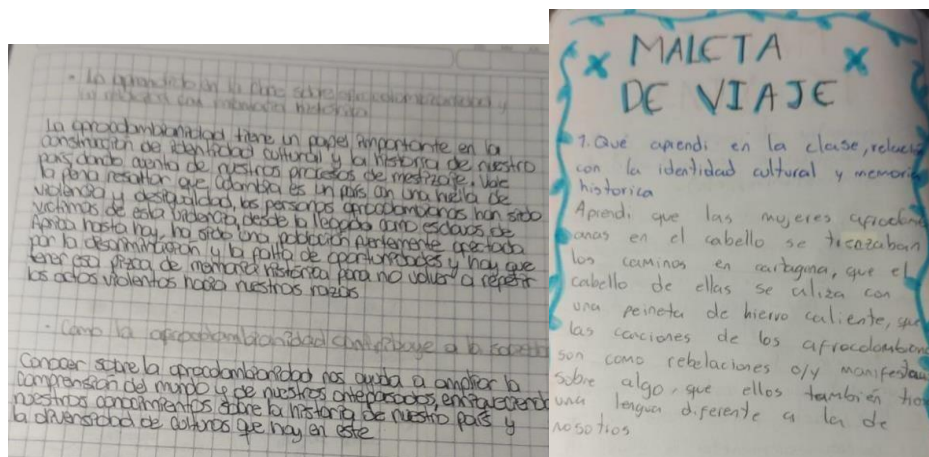 · Lo aprendido en la clase sobre afrocolombianidad y
su relación con memoria histórica
La afrocolombianidad tiene un papel importante en la
construcción de identidad cultural y la historia de nuestro
país, dando cuenta de nuestros procesos de mestizaje. Vale
la pena resaltar que Colombia es un país con una huella de
violencia y desigualdad, las personas afrocolombianas han sido
victimas de esta violencia, desde la llegada como esclavos de
África hasta hoy, ha sido una población fuertemente afectada
por la discriminación y la falta de oportunidades y hay que
tener eso pizca de memoria histórica para no volver a repetir
los actos violentos hacia nuestras razas
· Como la afrocolombianidad contribuye a la
Conocer sobre la afrocolombianidad nos ayuda a ampliar la
comprensión del mundo y de nuestros antepasados, enriqueciendo
nuestros conocimientos sobre la historia de nuestro país y
la diversidad de culturas que hay en este
MALETA
DE VIAJE
1. Qué aprendi en la clase, relació
con la identidad cultural y memoria
historica
Aprendi que las mujeres afrocolombi
anas en el cabello se trenzaban
los caminos en cartagena, que el
cabello de ellas se aliza con
una peineta de hierro caliente, que
las canciones de los afrocolombian
son como rebelaciones o/y manifestac
sobre algo, que ellos también tien
una lengua diferente a la de
nosotros